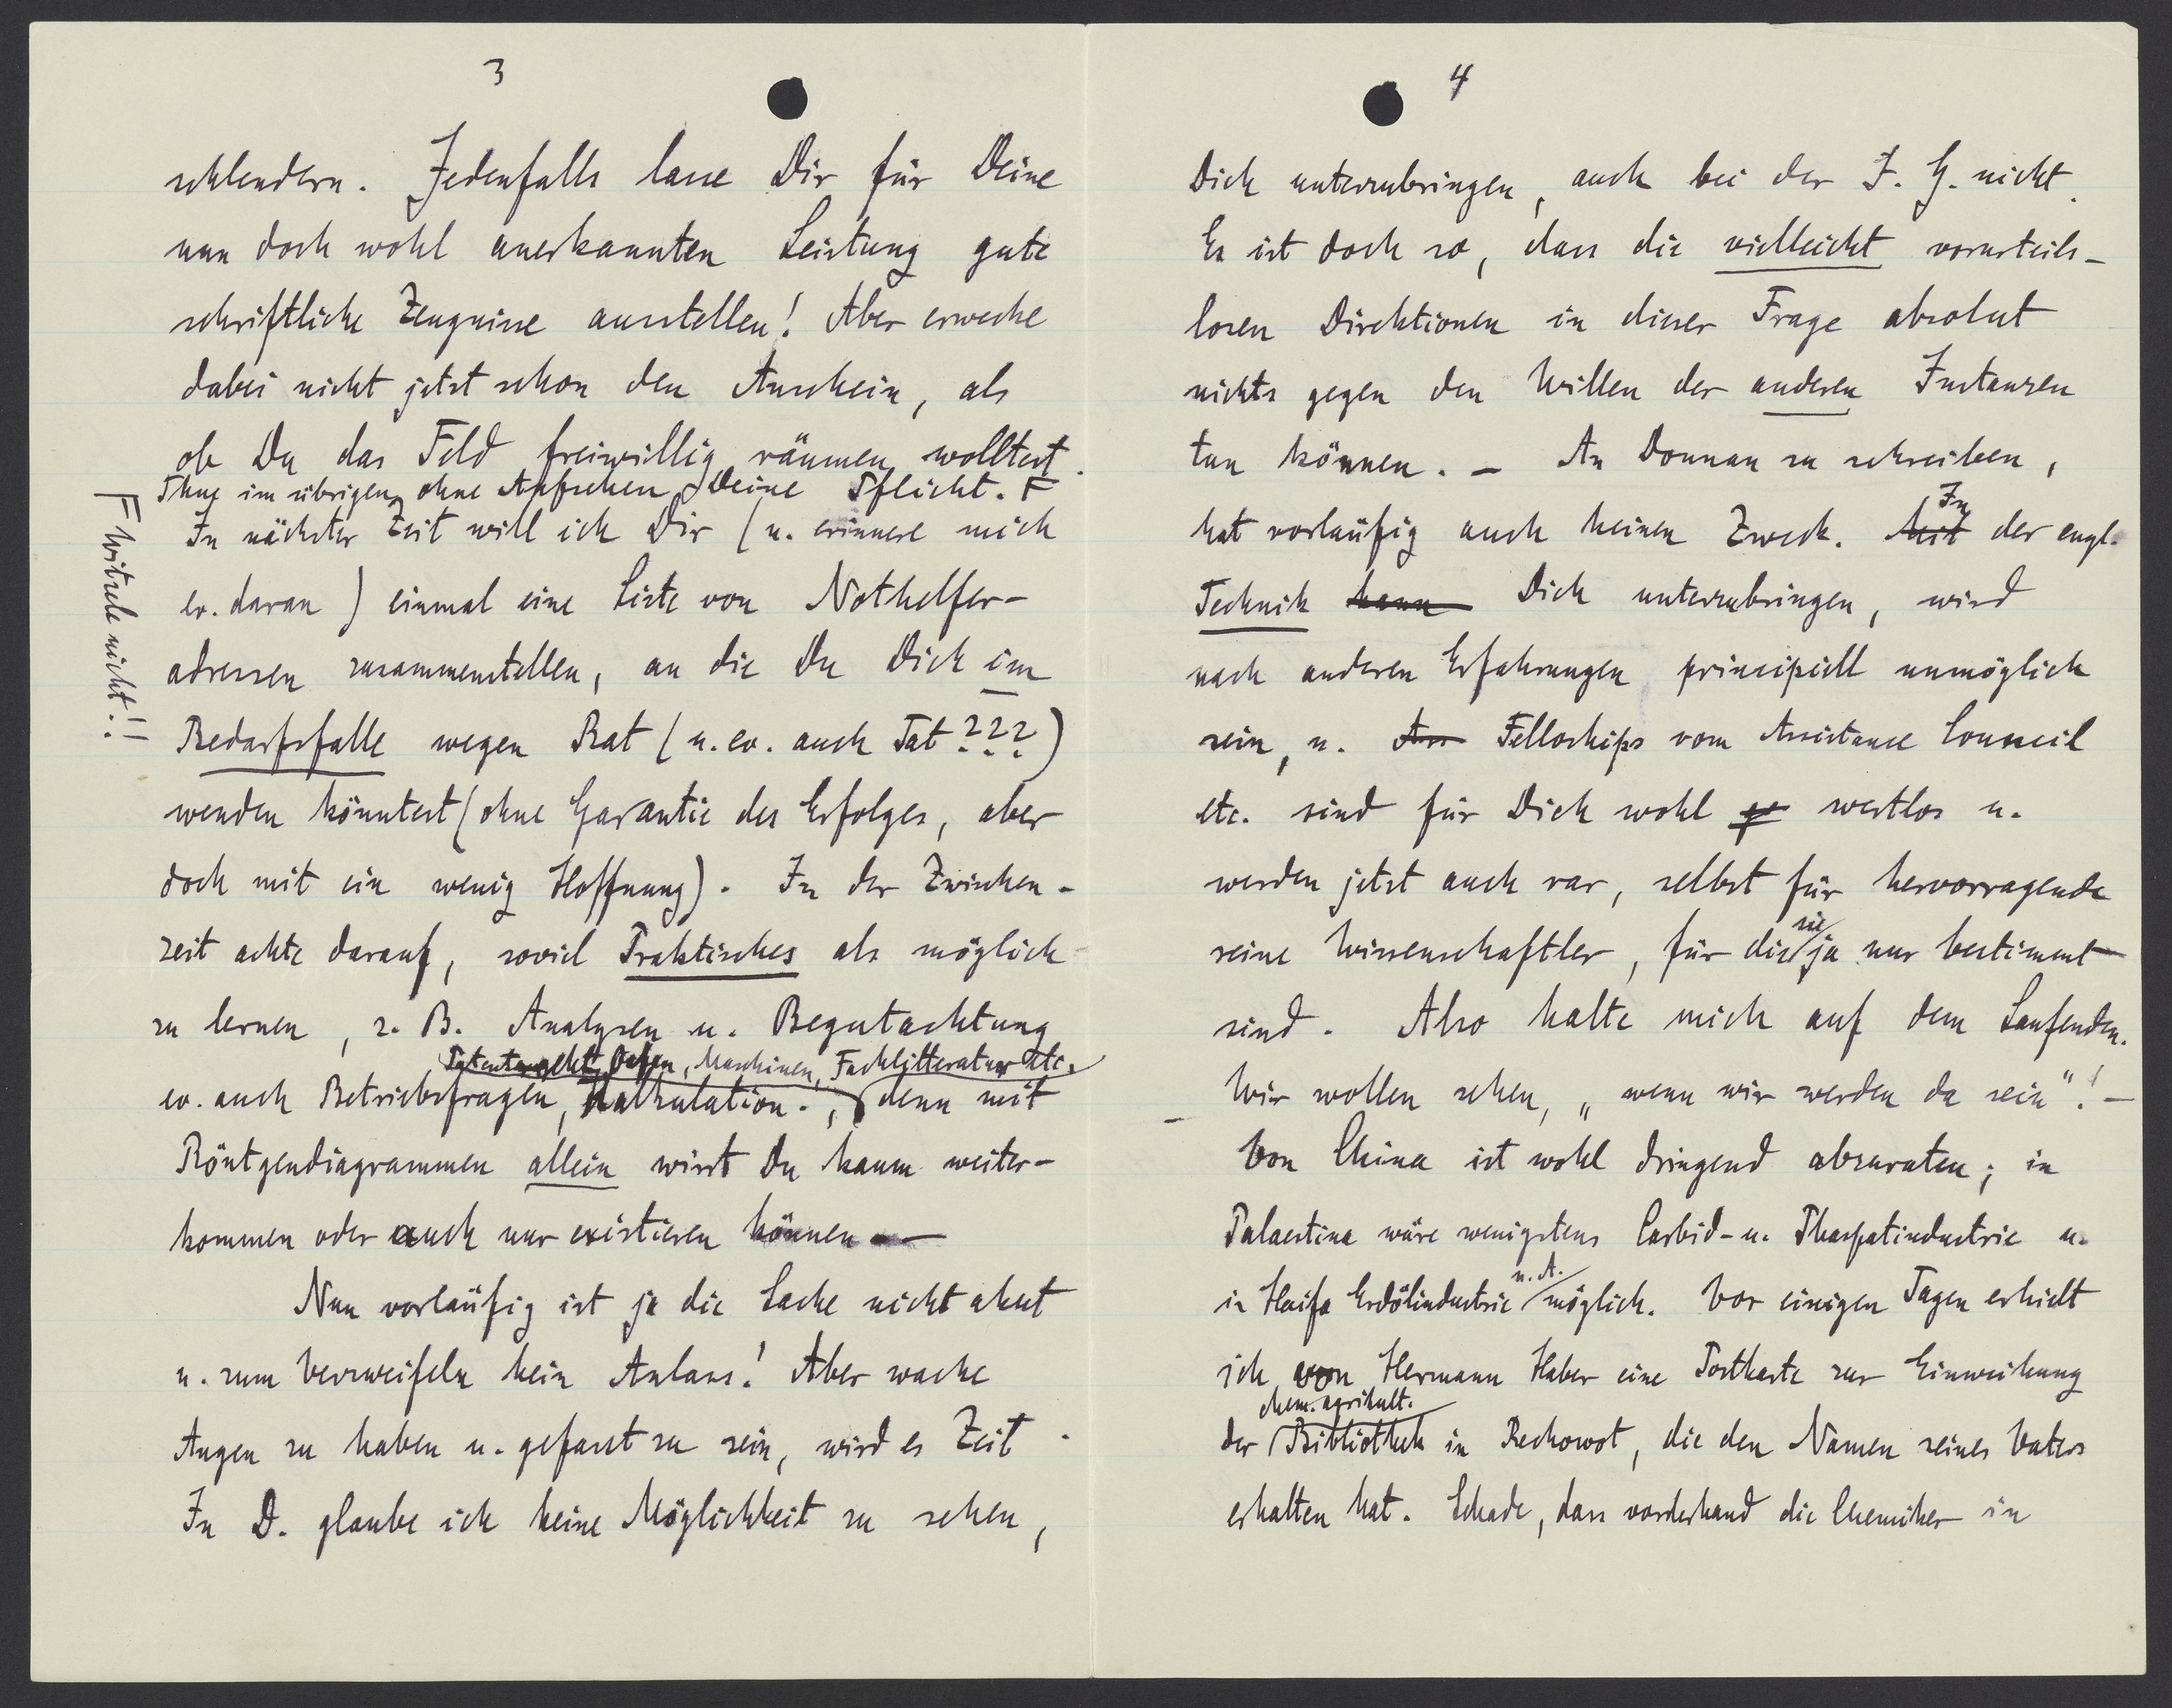 3
schlendern. Jedenfalls lasse Dir für Deine
nun doch wohl anerkannten Leistung gute
schriftliche Zeugnisse ausstellen! Aber erwecke
dabei nicht jetzt schon den Anschein, als
ob Du das Feld freiwillig räumen wolltest.
Thue im übrigen ohne Aufsehen Deine Pflicht. F
F Witzele nicht!!
In nächster Zeit will ich Dir (u. erinnere mich
ev. daran) einmal eine Liste von Nothelfer-
adressen zusammenstellen, an die Du Dich im
Bedarfsfalle wegen Rat (u. ev. auch Tat???)
wenden könntest (ohne Garantie des Erfolges, aber
doch mit ein wenig Hoffnung). In der Zwischen-
zeit achte darauf, soviel Praktisches als möglich
zu lernen, z. B. Analysen u. Begutachtung
Patentrecht, Oefen, Maschinen, Fachlitteratur etc.
ev. auch Betriebsfragen, Kalkulation., denn mit
Röntgendiagrammen allein wirst Du kaum weiter-
kommen oder auch nur existieren können. —
Nun vorläufig ist ja die Sache nicht akut
u. zum Verzweifeln kein Anlass! Aber wache
Augen zu haben u. gefasst zu sein, wird es Zeit.
In D. glaube ich keine Möglichkeit zu sehen,
4
Dich unterzubringen, auch bei der I. G. nicht.
Es ist doch so, dass die vielleicht vorurteils-
losen Direktionen in dieser Frage absolut
nichts gegen den Willen der anderen Instanzen
tun können. – An Donnan zu schreiben,
hat vorläufig auch keinen Zweck. Mit In der engl.
Technik kann Dich unterzubringen, wird
nach anderen Erfahrungen principiell unmöglich
sein, u. Ass Felloships vom Assistance Council
etc. sind für Dich wohl wertlos u.
werden jetzt auch rar, selbst für hervorragende
reine Wissenschaftler, für die sie ja nur bestimmt
sind. Also halte mich auf dem Laufenden.
Wir wollen sehen, „wenn wir werden da sein"! –
– Von China ist wohl dringend abzuraten; in
Palaestina wäre wenigstens Carbid- u. Phosphatindustrie u.
in Haifa Erdölindustrie u. A. möglich. Vor einigen Tagen erhielt
ich von Hermann Haber eine Postkarte zur Einweihung
der chem. agrikult. Bibliothek in Rechowot, die den Namen seines Vaters
erhalten hat. Schade, dass vorderhand die Chemiker in